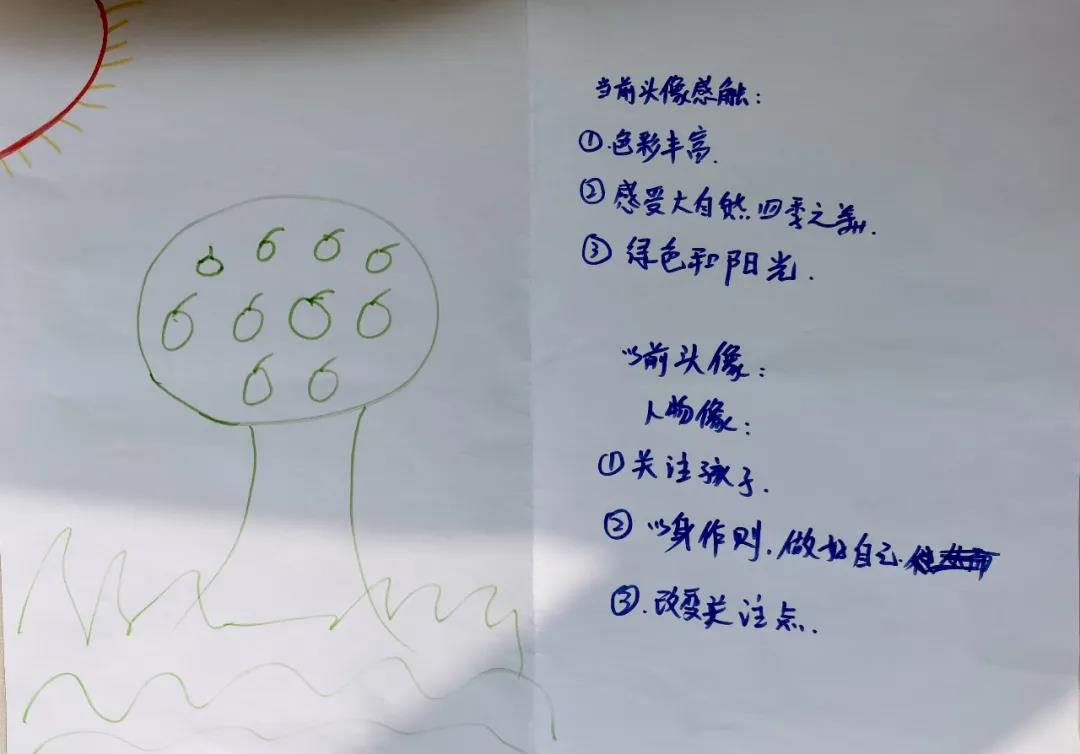 当前头像感触：
①.色彩丰富.
②感受大自然四季之美.
③绿色和阳光.
以前头像：
人物像：
①关注孩子.
②以身作则.做好自己.
③.改变关注点.